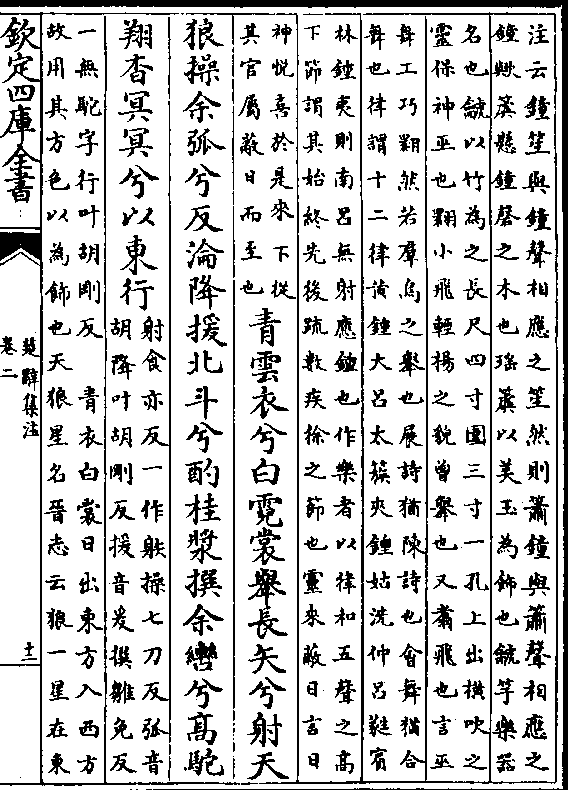 注云鐘笙與鐘聲相應之笙然則簫鐘與簫聲相應之
鐘歟簴懸鐘磬之木也瑤簴以美玉為飾也䶵竽樂器
名也䶵以竹為之長尺四寸圍三寸一孔上出橫吹之
靈保神巫也翾小飛輕揚之貌曾舉也又翥飛也言巫
舞工巧翾然若羣鳥之舉也展詩猶陳詩也會舞猶合
舞也律謂十二律黃鍾大呂太簇夾鍾姑洗仲呂蕤賓
林鍾夷則南呂無射應鍾也作樂者以律和五聲之高
下節謂其始終先後疏數疾徐之節也靈來蔽日言日
神悅喜於是來下從
其官屬蔽日而至也
青雲衣兮白霓裳舉長矢兮射天
狼操余弧兮反淪降援北斗兮酌桂漿撰余轡兮高駝
翔杳冥冥兮以東行
射食亦反一作躲操七刀反弧音
胡降叶胡剛反援音爰撰雛免反
一無駝字行叶胡剛反 青衣白裳日出東方入西方
故用其方色以為飾也天狼星名晉志云狼一星在東
欽定四庫全書
楚辭集注
卷二
十二